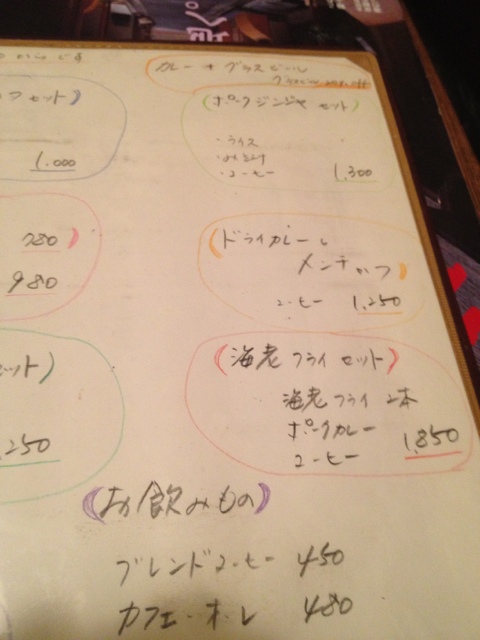 からです
カレー + グラスビール
フセット)
1,000
780)
980
ット)
250
(ポークジンジャセット)
・ライス
・みそ汁
・コーヒー
1,300
(ドライカレーと
メンチカツ)
コーヒー 1,250
(海老フライセット)
海老フライ 2本
ポークカレー
コーヒー 1,850
(お飲みもの)
ブレンドコーヒー 450
カフェ・オ・レ 480